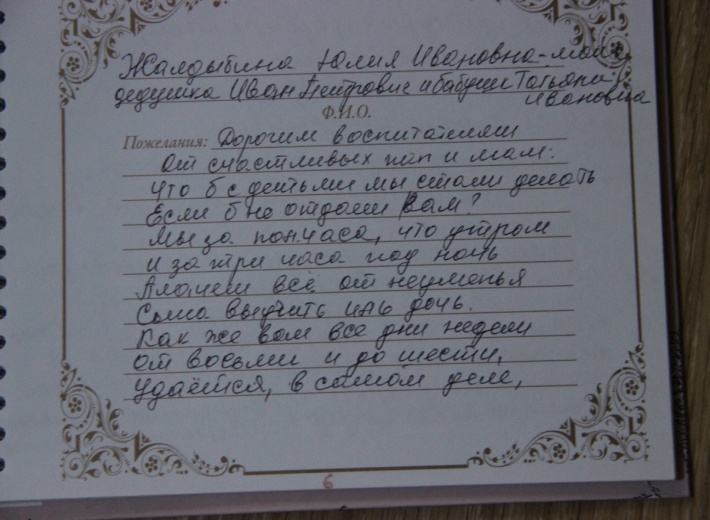 Жалдыбина Юлия Ивановна - мама,
дедушка Иван Петрович и бабушка Татьяна
Ивановна
Ф.И.О.
Пожелания: Дорогим воспитателям
От счастливых пап и мам:
Что б с детьми мы стали делать
Если б не отдали Вам?
Мы за полчаса, что утром
И за три часа под ночь
Плачем всё от неуменья
Сына выучить иль дочь.
Как же вам все дни недели
От восьми и до шести,
Удаётся, в самом деле,
6